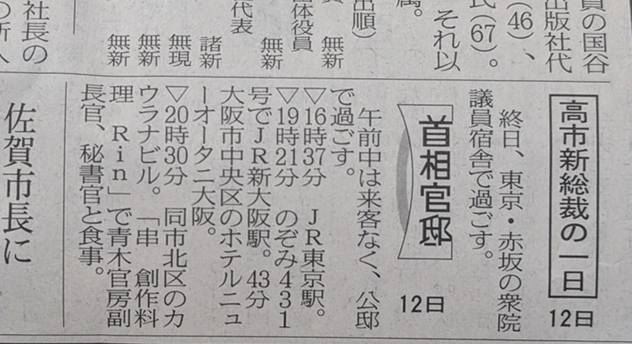 員の国谷
出版社代
(46)、
民(67)。
それ以
属。
出順)
無新
体役員
無新
代表
諸新
無現
無新
無新
社長の
高市新総裁の一日
12日
終日、東京・赤坂の衆院
議員宿舎で過ごす。
首相官邸
12日
午前中は来客なく、公邸
で過ごす。
▽16時37分 JR東京駅。
▽19時21分 のぞみ431
号でJR新大阪駅。43分
大阪市中央区のホテルニュ
ーオータニ大阪。
▽20時30分 同市北区のカ
ウラナビル。「串 創作料
理 Rin」で青木官房副
長官、秘書官と食事。
佐賀市長に